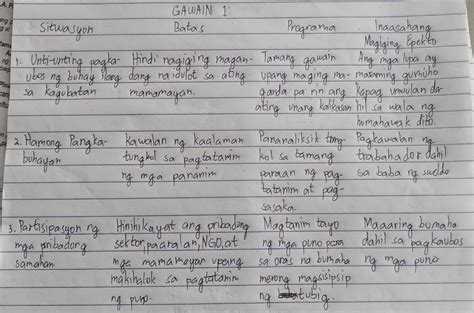 GAWAIN 1:
Sitwasyon Batas Programa Inaasahang
Magiging Epekto
1. Unti-unting pagka- Hindi nagiging magan- Tamang gawain Ang mga lupa ay
ubos ng buhay ilang dang naidulot sa ating upang maging ma- maaaring gumuho
sa kagubatan mamamayan. ganda pa rin ang kapag umuulan da-
ating unang kalikasan hil sa wala ng
humahawak dito.
2. Hamong Pangka- kawalan ng kaalaman Pananaliksik tung- Pagkawalan ng
buhayan tungkol sa pagtatanim kol sa tamang trabahador dahil
ng mga pananim paraan ng pag- sa baba ng sueldo
tatanim at pag-
sasaka.
3. Partisipasyon ng Hinihikayat ang pribadong Magtanim tayo Maaaring bumaha
mga pribadong sektor, paaralan, NGO, at ng mga puno para dahil sa pagkaubos
samahan mga mamamayan upang sa oras na bumaha ng mga puno
makihalok sa pagtatanim merong magsisipsip
ng puno. ng tubig.